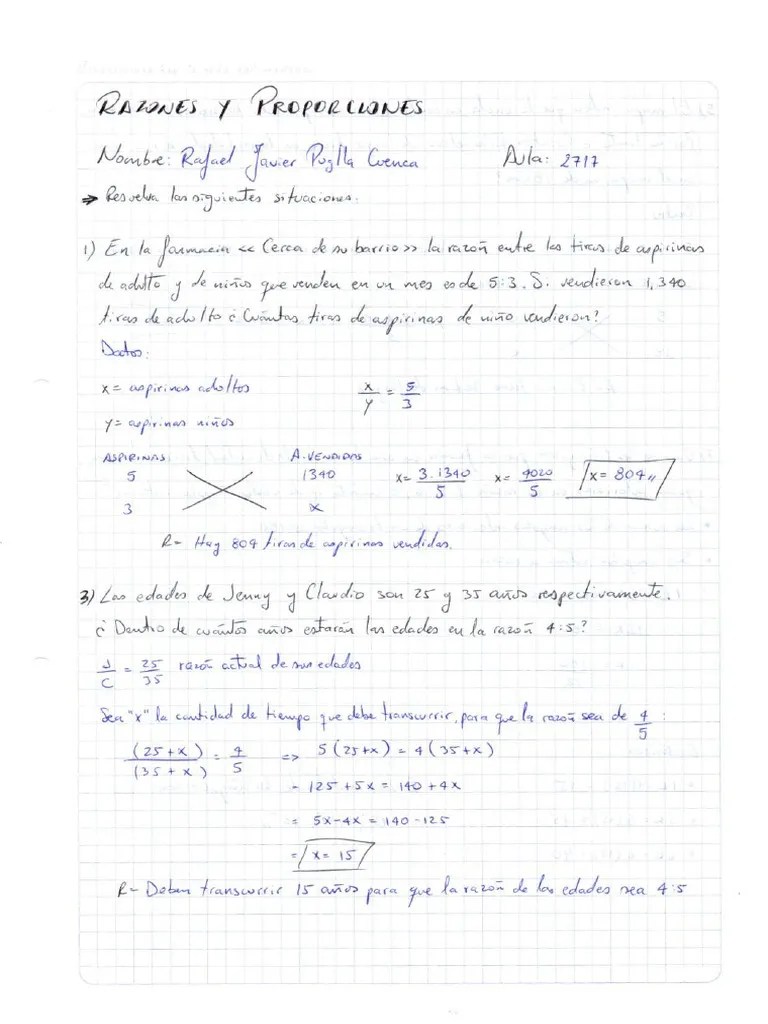 RAZONES Y PROPORCIONES
Nombre: Rafael Javier Puglla Cuenca Aula: 2717
→ Resuelva las siguientes situaciones:
1) En la farmacia << Cerca de su barrio>> la razón entre las tiras de aspirinas
de adulto y de niños que venden en un mes es de 5:3. Si vendieron 1,340
tiras de adulto ¿Cuántas tiras de aspirinas de niño vendieron?
Datos:
x= aspirinas adultos x/y = 5/3
y= aspirinas niños
ASPIRINAS A. VENDIDAS
5 1340 x= 3.1340/5 x= 4020/5 x= 804,,
3 x
R- Hay 804 tiras de aspirinas vendidas.
3) Las edades de Jenny y Claudio son 25 y 35 años respectivamente.
¿ Dentro de cuántos años estarán las edades en la razón 4:5?
J/C = 25/35 razón actual de sus edades
Sea "x" la cantidad de tiempo que debe transcurrir, para que la razón sea de 4/5 :
(25+x)/(35+x) = 4/5 => 5(25+x) = 4(35+x)
= 125 + 5x = 140 + 4x
= 5x-4x = 140-125
= x= 15
R- Deben transcurrir 15 años para que la razón de las edades sea 4:5